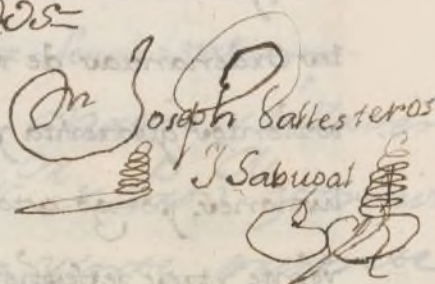 Dn Joseph Ballesteros
Y Sabugal